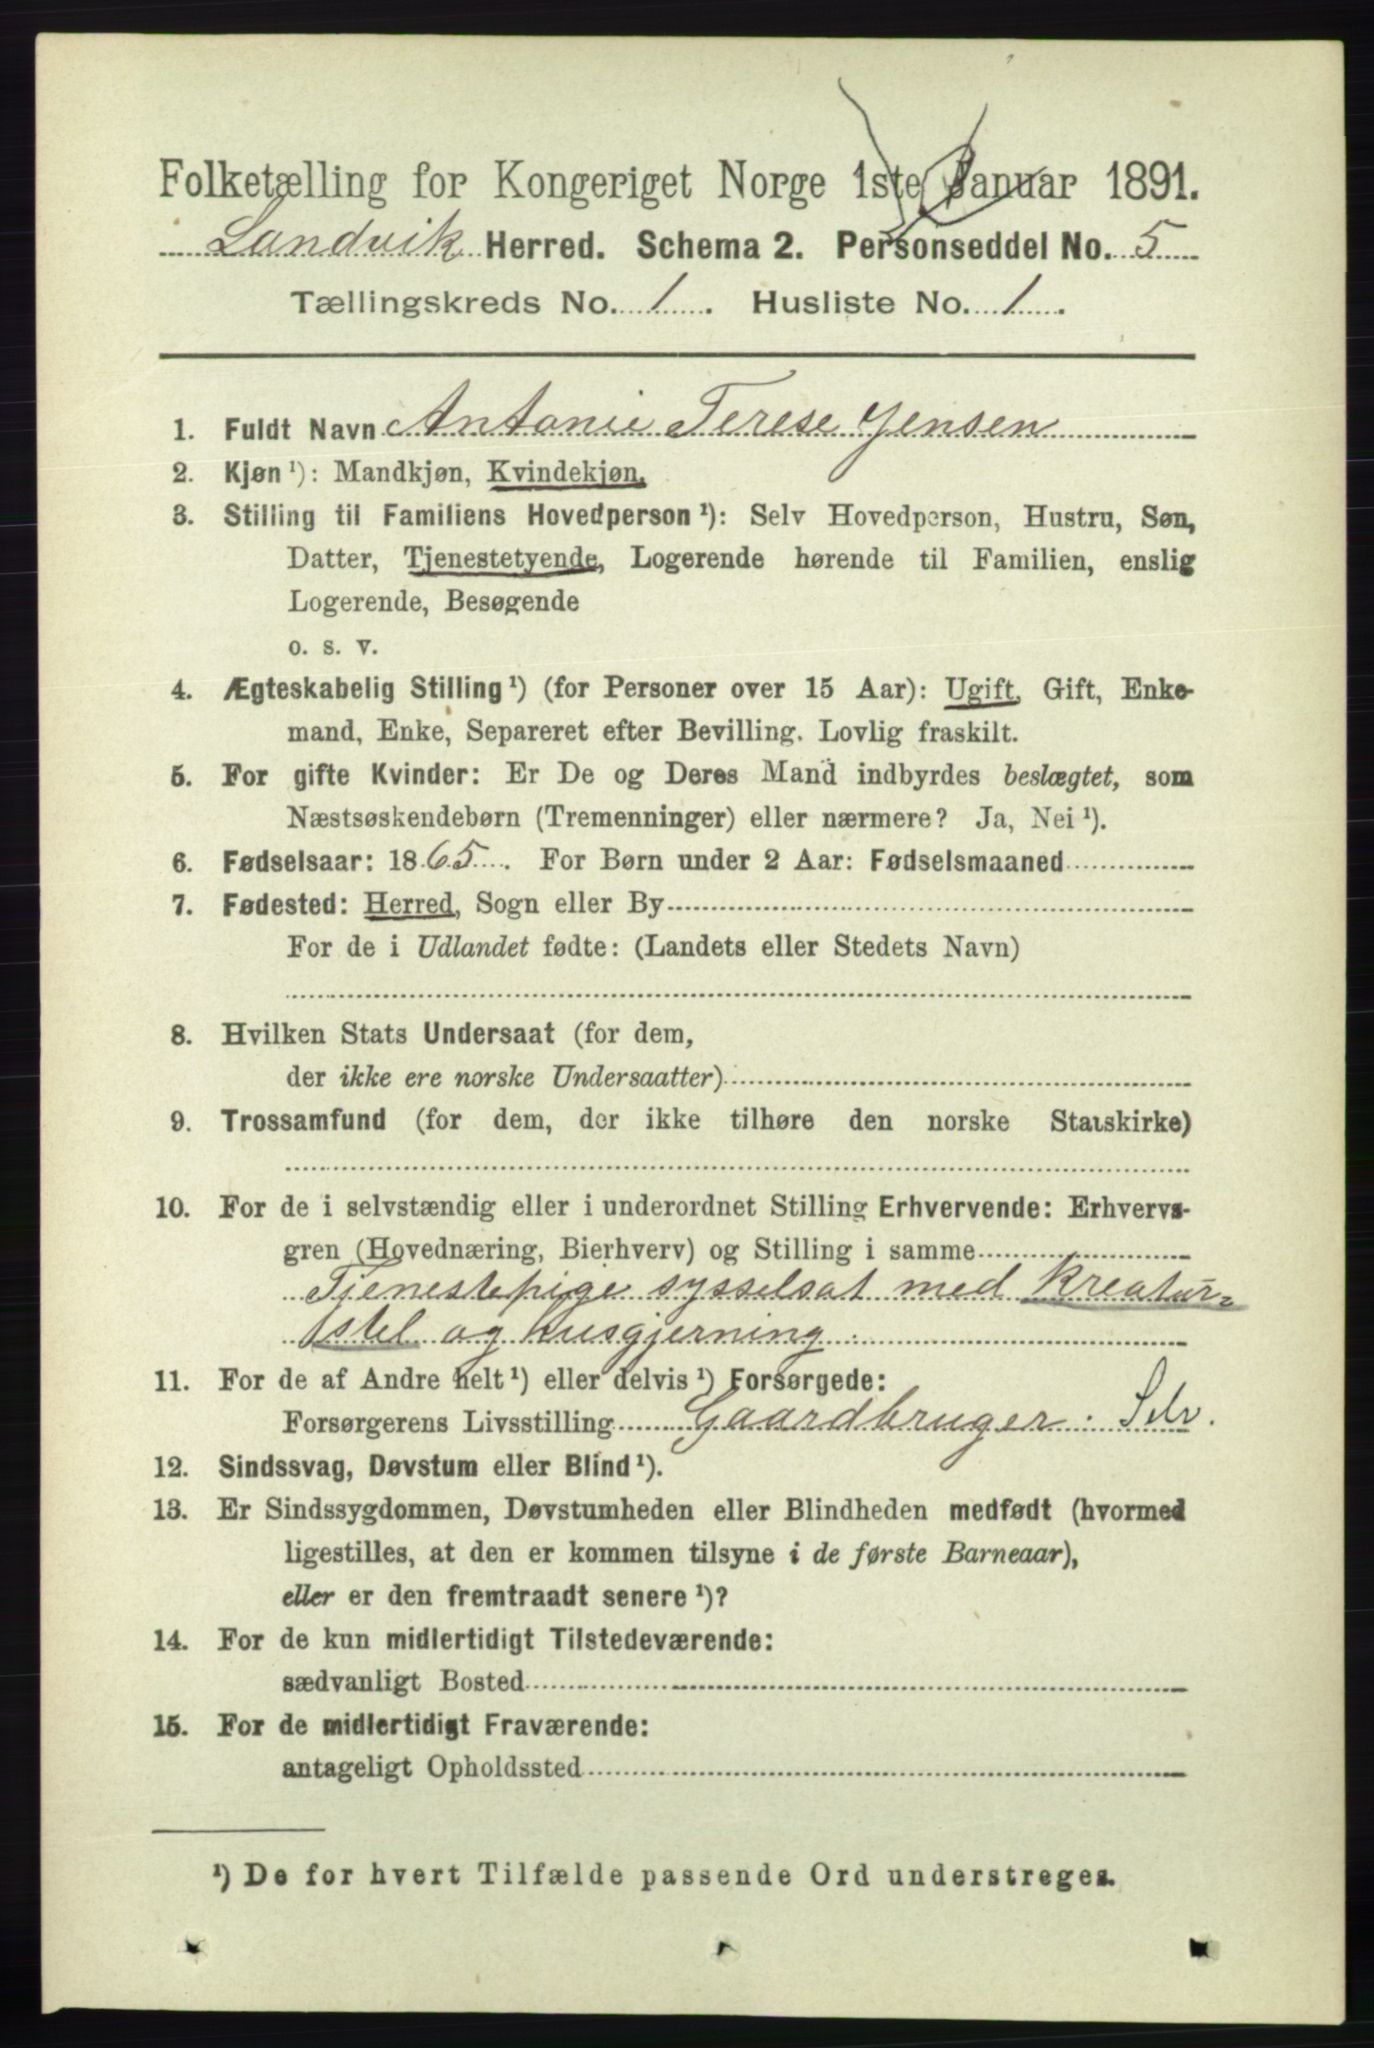 Folketælling for Kongeriget Norge 1ste Januar 1891.
Landvik Herred. Schema 2. Personseddel No. 5
Tællingskreds No. 1. Husliste No. 1.
1. Fuldt Navn Antonie Terese Jensen
2. Kjøn¹): Mandkjøn, Kvindekjøn.
3. Stilling til Familiens Hovedperson¹): Selv Hovedperson, Hustru, Søn,
Datter, Tjenestetyende, Logerende hørende til Familien, enslig
Logerende, Besøgende
o. s. v.
4. Ægteskabelig Stilling¹) (for Personer over 15 Aar): Ugift, Gift, Enke-
mand, Enke, Separeret efter Bevilling. Lovlig fraskilt.
5. For gifte Kvinder: Er De og Deres Mand indbyrdes beslægtet, som
Næstsøskendebørn (Tremenninger) eller nærmere? Ja, Nei¹).
6. Fødselsaar: 1865. For Børn under 2 Aar: Fødselsmaaned
7. Fødested: Herred, Sogn eller By
For de i Udlandet fødte: (Landets eller Stedets Navn)
8. Hvilken Stats Undersaat (for dem,
der ikke ere norske Undersaatter)
9. Trossamfund (for dem, der ikke tilhøre den norske Statskirke)
10. For de i selvstændig eller i underordnet Stilling Erhvervende: Erhvervs-
gren (Hovednæring, Bierhverv) og Stilling i samme
Tjenestepige sysselsat med Kreatur-
stel og husgjerning.
11. For de af Andre helt¹) eller delvis¹) Forsørgede:
Forsørgerens Livsstilling Gaardbruger. Selv.
12. Sindssvag, Døvstum eller Blind¹).
13. Er Sindssygdommen, Døvstumheden eller Blindheden medfødt (hvormed
ligestilles, at den er kommen tilsyne i de første Barneaar),
eller er den fremtraadt senere¹)?
14. For de kun midlertidigt Tilstedeværende:
sædvanligt Bosted
15. For de midlertidigt Fraværende:
antageligt Opholdssted
¹) De for hvert Tilfælde passende Ord understreges.